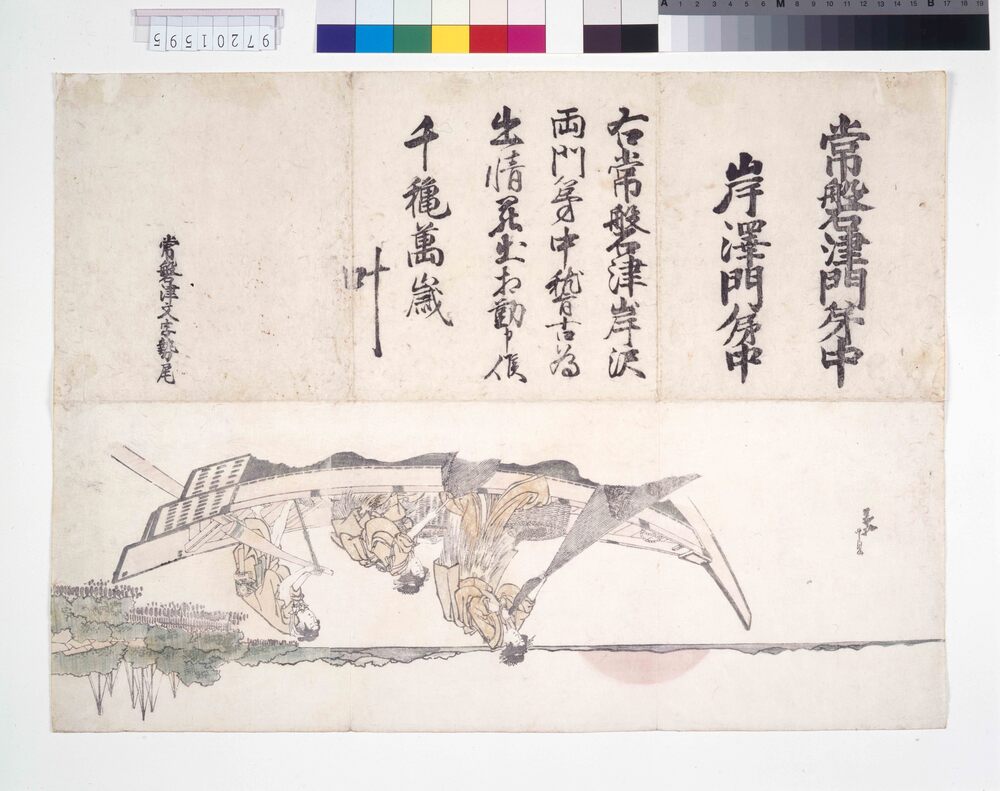 常磐津門弟中
岸澤門弟中
右常磐津岸沢
両門弟中稽古為
出情罷出相勤申候
千穐萬歳
叶
常磐津文字勢尾
97201595
A 1 2 3 4 5 6 M 8 9 10 11 12 13 14 15 B 17 18 19